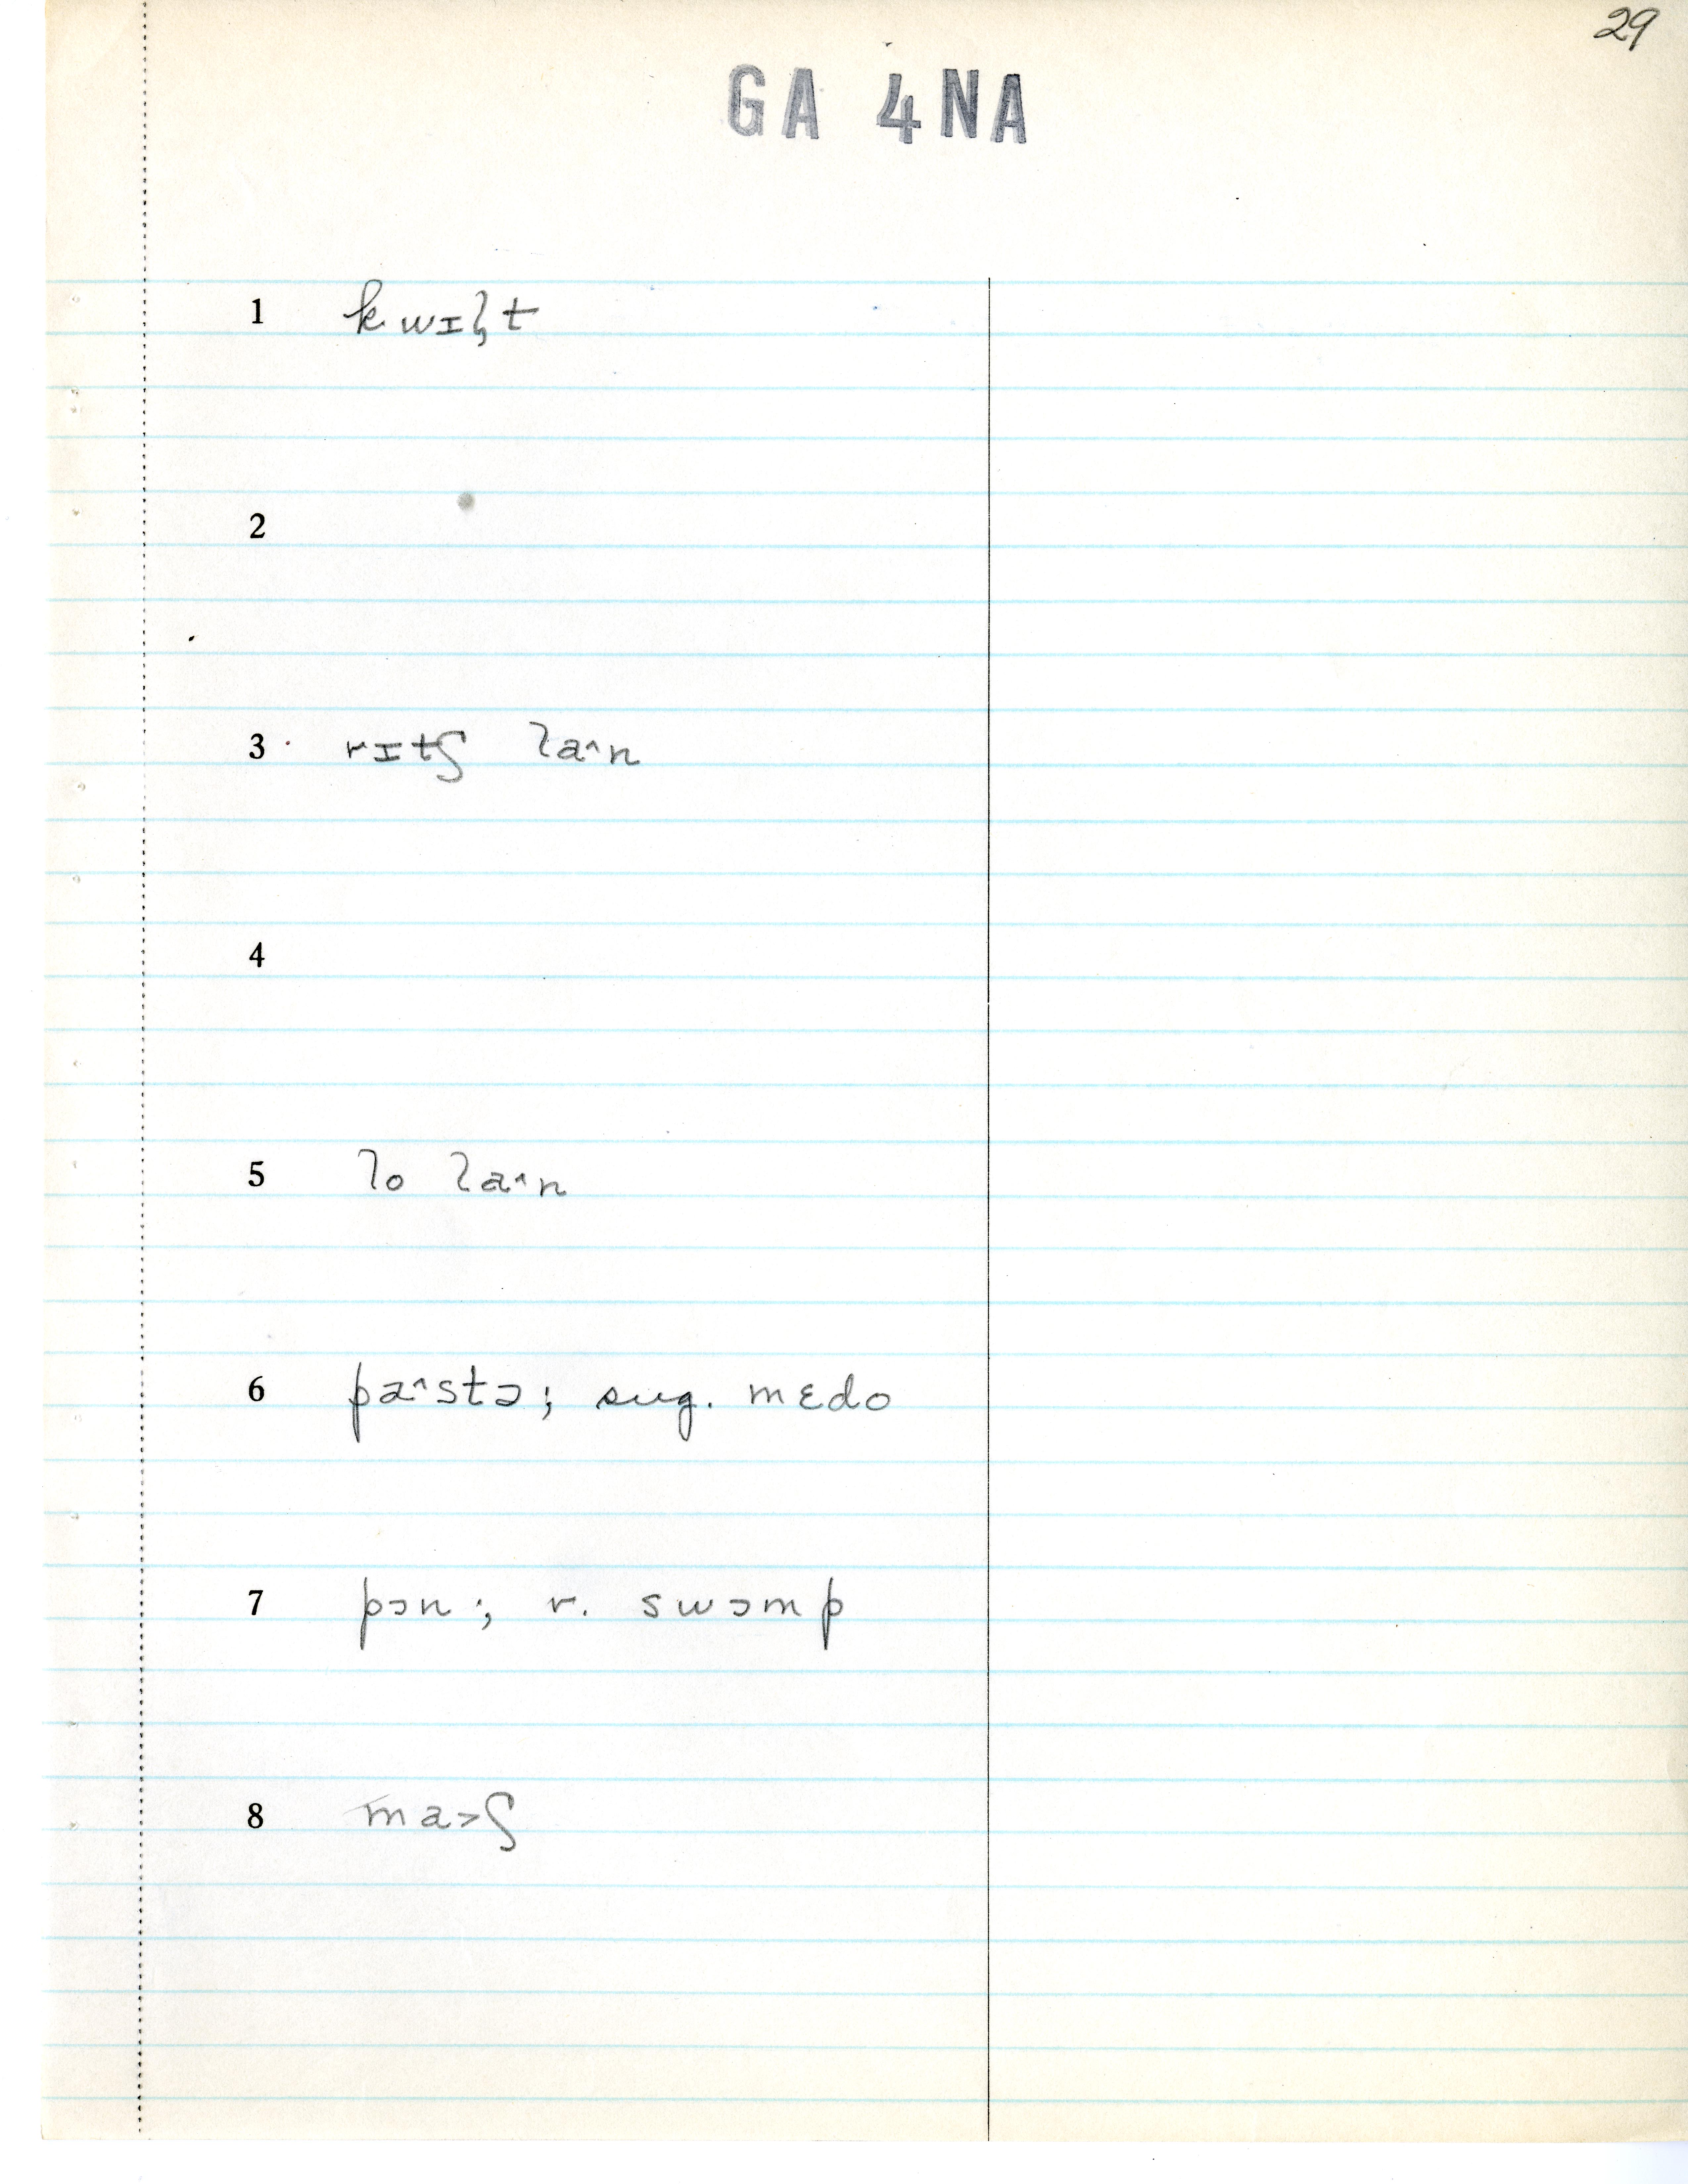 29
GA 4NA
1 kwɪl̡t
2
3 rɪtʃ la˄n
4
5 lo la˄n
6 pa˄stə; sug. mɛdo
7 pɔn; r. swɔmp
8 ma˃ʃ